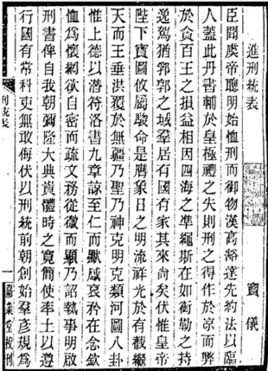 進刑統表
竇儀
臣聞虞帝聰明始恤刑而御物漢高豁達先約法以臨
人蓋此丹書輔於皇極禮之失則刑之得作於涼而弊
於貪百王之損益相因四海之準繩斯在如衡勒之持
逸駕猶郛郭之域羣居有國有家其來尚矣伏惟皇帝
陛下寶圖攸屬駿命是膺象日之明流祥光於有截繼
天而王垂洪覆於無疆乃聖乃神克明克類河圖八卦
惟上德以潛符洛書九章諒至仁而獻哀矜在念欽
恤為懷網欲自密而疏文務從微而顯乃詔執事明啟
刑書俾自我朝彌隆大典貴體時之寬簡使率土以遵
行國有常科吏無敢侮伏以刑統前朝創始羣彥規為
刑統表
一
嘉業堂校刊